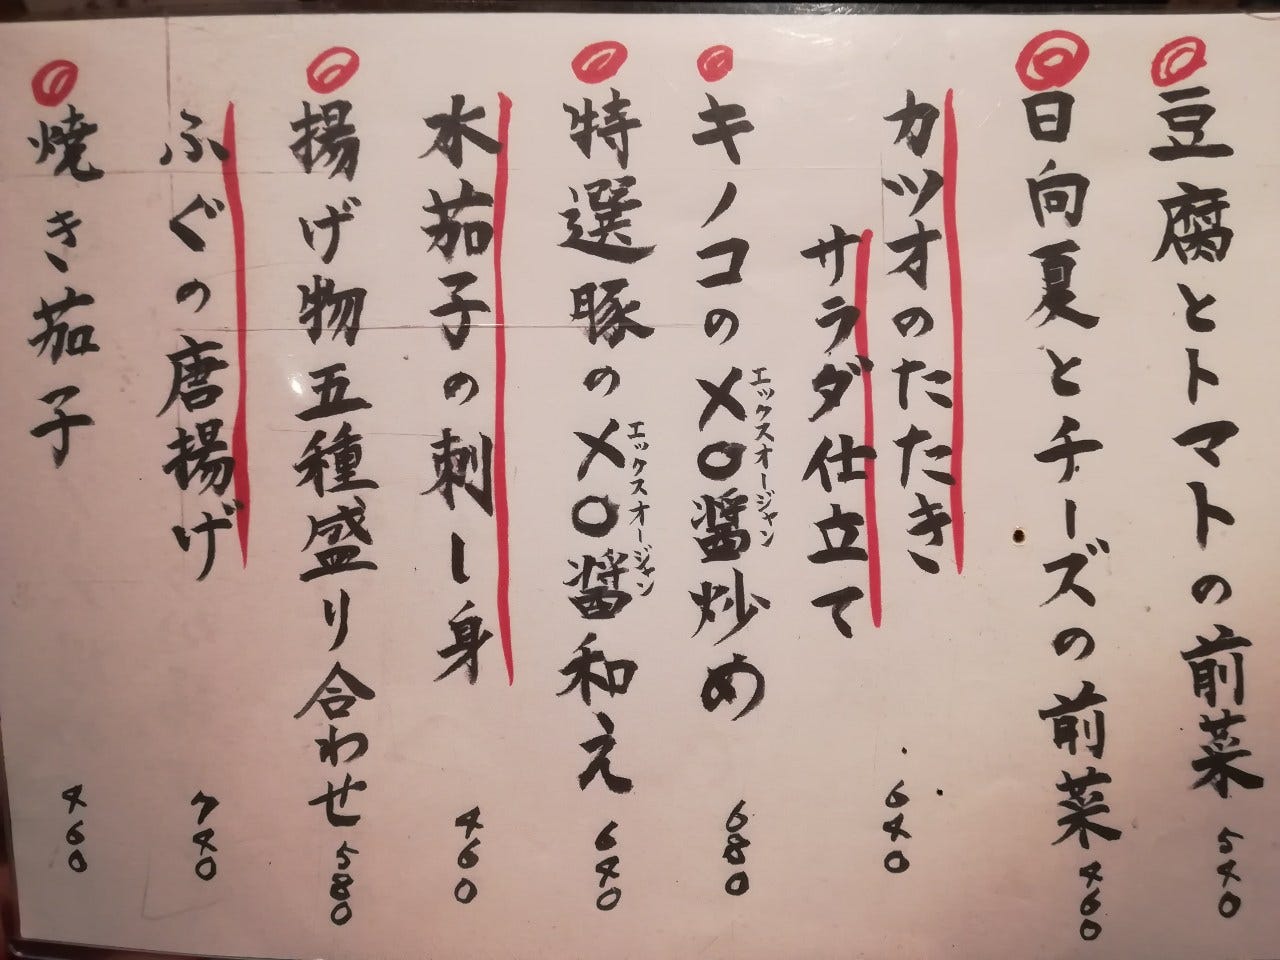 豆腐とトマトの前菜 540
日向夏とチーズの前菜 460
カツオのたたき
サラダ仕立て 640
キノコのXO醤炒め 680
エックスオージャン
特選豚のXO醤和え 640
エックスオージャン
水茄子の刺し身 460
揚げ物五種盛り合わせ 580
ふぐの唐揚げ 740
焼き茄子 460